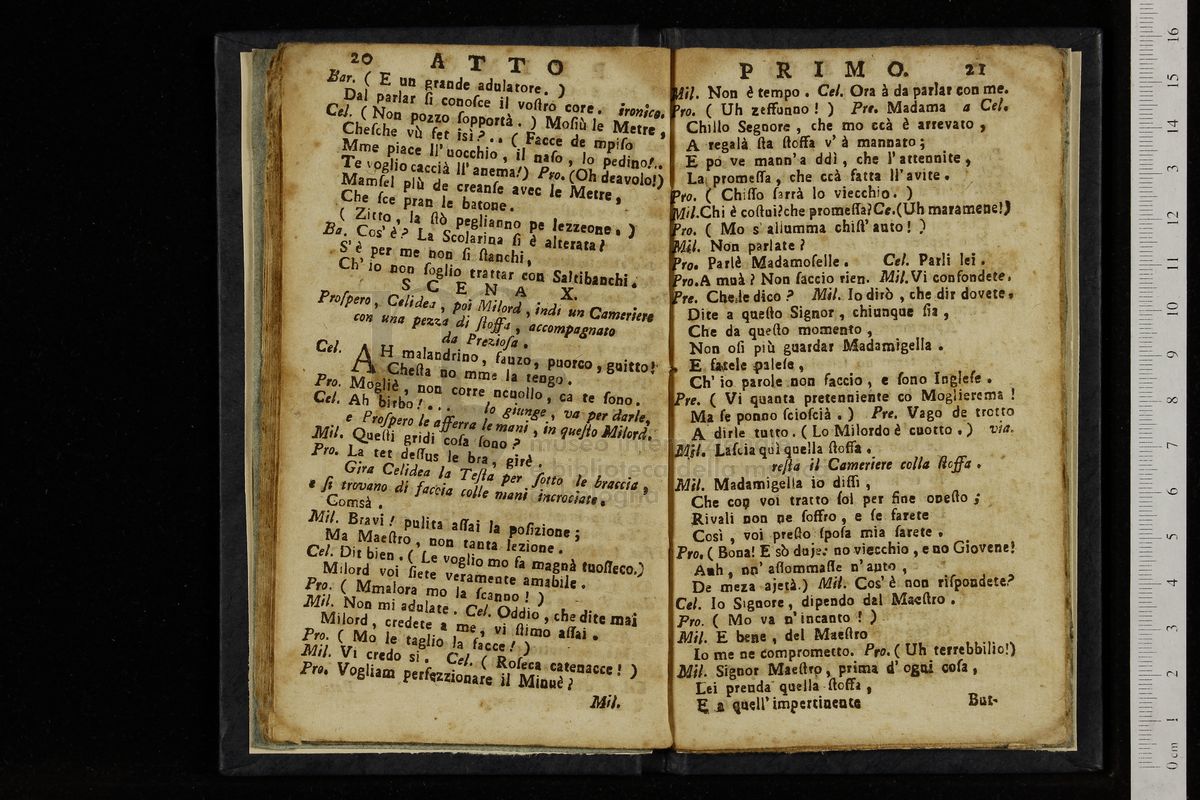 20 ATTO
Bar. ( E un grande adulatore. )
Dal parlar ſi conoſce il voſtro core. ironico.
Cel. ( Non pozzo ſopportà. ) Moſiù le Metre,
Cheſche vù fet isì?.. ( Facce de mpiſo
Mme piace ll' uocchio, il naſo, lo pedino!..
Te voglio caccià ll' anema!) Pro. (Oh deavolo!)
Mamſel plù de creanſe avec le Metre,
Che ſce pran le batone.
( Zitto, la ſtò peglianno pe lezzeone. )
Ba. Cos' è? La Scolarina ſi è alterata?
S' è per me non ſi ſtanchi,
Ch' io non ſoglio trattar con Saltibanchi.
SCENA X.
Proſpero, Celidea, poi Milord, indi un Cameriere
con una pezza di ſtoffa, accompagnato
da Prezioſa.
Cel. AH malandrino, fauzo, puorco, guitto!
Cheſta no mme la tengo.
Pro. Mogliè, non corre ncuollo, ca te ſono.
Cel. Ah birbo!... lo giunge, va per darle,
e Proſpero le afferra le mani, in queſto Milord.
Mil. Queſti gridi coſa ſono?
Pro. La tet deſſus le bra, girè.
Gira Celidea la Teſta per ſotto le braccia,
e ſi trovano di faccia colle mani incrociate.
Comsà.
Mil. Bravi! pulita aſſai la poſizione;
Ma Maeſtro, non tanta lezione.
Cel. Dit bien. ( Le voglio mo fa magnà tuoſſeco.)
Milord voi ſiete veramente amabile.
Pro. ( Mmalora mo la ſcanno! )
Mil. Non mi adulate. Cel. Oddio, che dite mai
Milord, credete a me, vi ſtimo aſſai.
Pro. ( Mo le taglio la facce! )
Mil. Vi credo sì. Cel. ( Roſeca catenacce! )
Pro. Vogliam perfezzionare il Minuè?
Mil.
PRIMO. 21
Mil. Non è tempo. Cel. Ora à da parlar con me.
Pro. ( Uh zeffunno! ) Pre. Madama a Cel.
Chillo Segnore, che mo ccà è arrevato,
A regalà ſta ſtoffa v' à mannato;
E pò ve mann' a ddì, che l' attennite,
La promeſſa, che ccà fatta ll' avite.
Pro. ( Chiſſo ſarrà lo viecchio. )
Mil. Chi è coſtui? che promeſſa? Ce. (Uh maramene!)
Pro. ( Mo s' allumma chiſt' auto! )
Mil. Non parlate?
Pro. Parlè Madamoſelle. Cel. Parli lei.
Pro. A muà? Non faccio rien. Mil. Vi confondete.
Pre. Che le dico? Mil. Io dirò, che dir dovete.
Dite a queſto Signor, chiunque ſia,
Che da queſto momento,
Non oſi più guardar Madamigella.
E fatele paleſe,
Ch' io parole non faccio, e ſono Ingleſe.
Pre. ( Vi quanta pretenniente co Moglierema!
Ma ſe ponno ſcioſcià. ) Pre. Vago de trotto
A dirle tutto. ( Lo Milordo è cuotto. ) via.
Mil. Laſcia quì quella ſtoffa.
reſta il Cameriere colla ſtoffa.
Mil. Madamigella io diſſi,
Che con voi tratto ſol per fine oneſto;
Rivali non ne ſoffro, e ſe farete
Così, voi preſto ſpoſa mia ſarete.
Pro. ( Bona! E sò duje: no viecchio, e no Giovene!
Auh, nn' aſſommaſſe n' auto,
De meza ajetà.) Mil. Cos' è non riſpondete?
Cel. Io Signore, dipendo dal Maeſtro.
Pro. ( Mo va n' incanto! )
Mil. E bene, del Maeſtro
Io me ne comprometto. Pro. ( Uh terrebbilio!)
Mil. Signor Maeſtro, prima d' ogni coſa,
Lei prenda quella ſtoffa,
E a quell' impertinente
But-